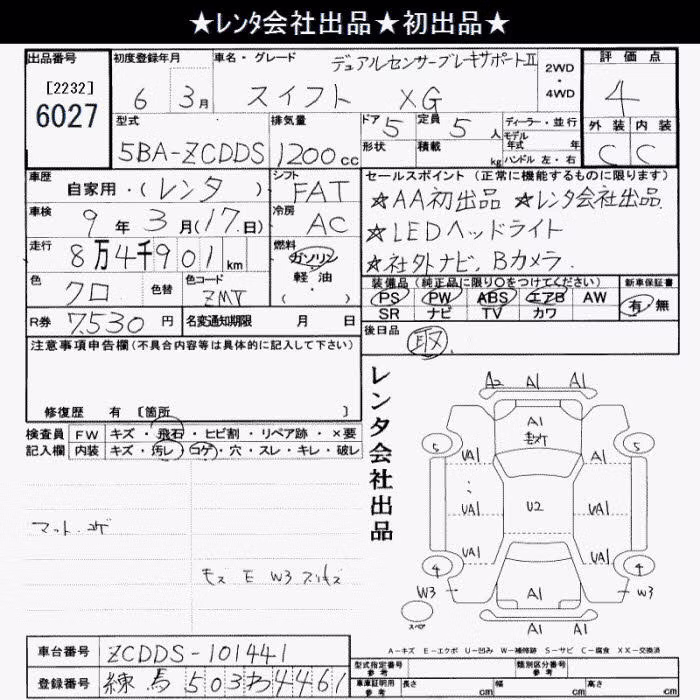 ★レンタ会社出品★初出品★
出品番号 初度登録年月 車名・グレード デュアルセンサーブレーキサポートⅡ 2WD・4WD 評価点
[2232] 6027
6 3月 スイフト XG 4
型式 排気量 ドア 5 定員 5人 ディーラー・並行 外装 内装
5BA-ZCDDS 1200cc 形状 積載 kg モデル年式 年 ハンドル 左・右 C C
車歴 自家用・(レンタ) シフト FAT セールスポイント(正常に機能するものに限ります)
★AA初出品 ★レンタ会社出品
車検 9年3月(17日) 冷房 AC ★LEDヘッドライト
走行 8万4千901km 燃料 ガソリン 軽油・ ★社外ナビ、Bカメラ
色 クロ 色替 色コード ZMV 装備品(純正品に限り〇をつけてください) 新車保証書
PS PW ABS エアB AW 有・無
SR ナビ TV カワ
R券 7,530円 名変通知期限 月 日 後日品
取
注意事項申告欄(不具合内容等は具体的に記入して下さい)
修復歴 有 [箇所 ]
検査員記入欄 FW キズ・飛石・ヒビ割・リペア跡・×要
内装 キズ・汚レ・コゲ・穴・スレ・キレ・破レ
マット.コゲ
モズ E W3
レンタ会社出品
A2 A1 A1
A1
5 5
UA1 UA1
UA1 U2 UA1
UA1 UA1
4 4
W3 A1 W3
スペア A1 A1
A-キズ E-エクボ U-凹み W-補修跡 S-サビ C-腐食 XX-交換済
車台番号 ZCDDS-101441
登録番号 練馬503わ4461
型式指定番号 参考 類別区分番号 参考
車庫証明用 参考 長さ cm 幅 cm 高さ cm